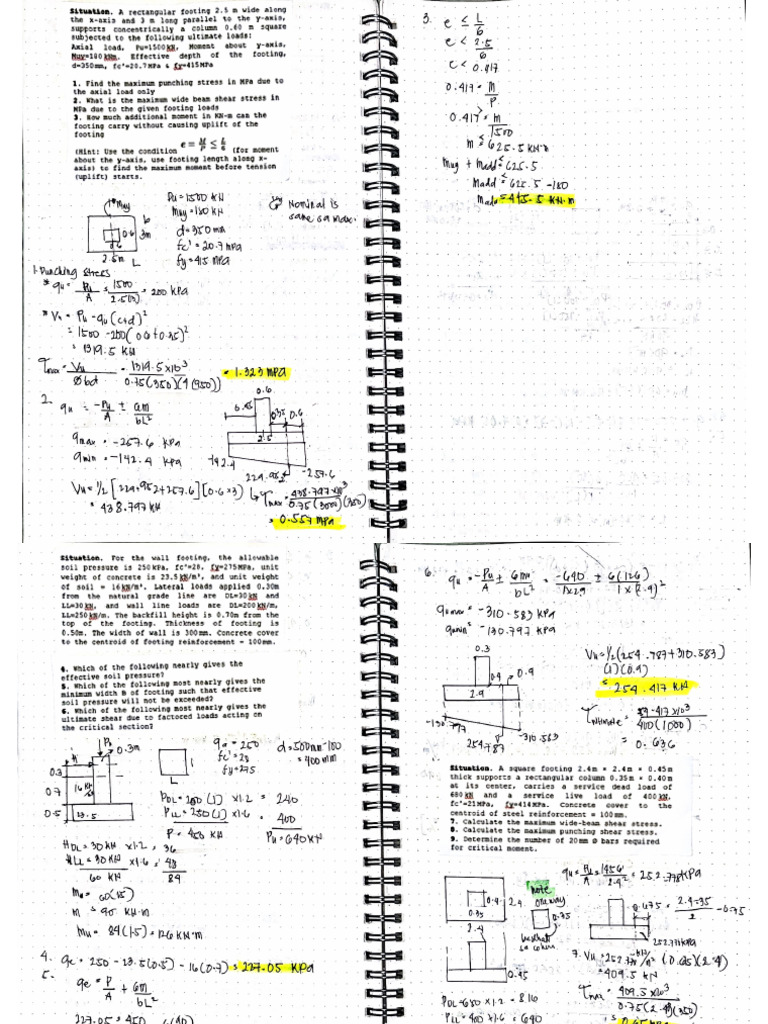 Situation. A rectangular footing 2.5 m wide along
the x-axis and 3 m long parallel to the y-axis,
supports concentrically a column 0.60 m square
subjected to the following ultimate loads:
Axial load, Pu=1500kN, Moment about y-axis,
Muy=180 kNm. Effective depth of the footing,
d=350mm, fc'=20.7MPa & fy=415MPa
1. Find the maximum punching stress in MPa due to
the axial load only
2. What is the maximum wide beam shear stress in
MPa due to the given footing loads
3. How much additional moment in KN-m can the
footing carry without causing uplift of the
footing
(Hint: Use the condition e = M/P ≤ L/6 (for moment
about the y-axis, use footing length along x-
axis) to find the maximum moment before tension
(uplift) starts.
Muy
0.6
3m
2.5m L
Pu=1500 KN
Muy=180 KN
d=350 mm
fc'=20.7 mPa
fy=415 MPa
Nominal is
same as max.
1. Punching Stress
* qu = Pu/A = 1500/2.5(3) = 200 KPa
* Vu = Pu - qu(c+d)²
= 1500 - 200(0.6+0.35)²
= 1319.5 KN
τmax = Vu/Øbd = 1319.5x10³/0.75(350)(4(950)) = 1.323 mPa
2. qu = -Pu/A ± 6m/bL²
qmax = -257.6 KPa
qmin = -142.4 KPa
0.6
0.35
0.6
2.5
-142.4
224.952
-257.6
Vu = 1/2 [224.952+257.6][0.6x3]
= 438.797 KN
τmax = 438.797x10³/0.75(3000)(350)
= 0.557 mPa
3. e ≤ L/6
e < 2.5/6
e < 0.417
0.417 = M/P
0.417 = M/1500
M ≤ 625.5 KN·m
Muy + Madd ≤ 625.5
Madd = 625.5 - 180
Madd = 445.5 KN·m
Situation. For the wall footing, the allowable
soil pressure is 250kPa, fc'=28, fy=275MPa, unit
weight of concrete is 23.5kN/m³, and unit weight
of soil = 16kN/m³. Lateral loads applied 0.30m
from the natural grade line are DL=30kN and
LL=30kN, and wall line loads are DL=200kN/m,
LL=250kN/m. The backfill height is 0.70m from the
top of the footing. Thickness of footing is
0.50m. The width of wall is 300mm. Concrete cover
to the centroid of footing reinforcement = 100mm.
4. Which of the following nearly gives the
effective soil pressure?
5. Which of the following most nearly gives the
minimum width B of footing such that effective
soil pressure will not be exceeded?
6. Which of the following most nearly gives the
ultimate shear due to factored loads acting on
the critical section?
0.3m
0.3
0.7
0.5
23.5
L
qa = 250
fc' = 28
fy = 275
d = 500mm - 100
= 400 mm
PDL = 200(1) x1.2 = 240
PLL = 250(1) x1.6 = 400
P = 450 KN
Pu = 640 KN
HDL = 30 KN x1.2 = 36
HLL = 30 KN x1.6 = 48
60 KN
84
M = 60(1.5)
M = 90 KN·m
Mu = 84(1.5) = 126 KN·m
4. qe = 250 - 23.5(0.5) - 16(0.7) = 227.05 KPa
5. qe = P/A + 6m/bL²
6. qu = -Pu/A ± 6mu/bL² = -640/1x2.9 ± 6(126)/1x(2.9)²
qumax = -310.583 KPa
qumin = -130.797 KPa
0.3
0.9
0.4
2.9
-130.797
254.787
-310.583
Vu = 1/2(254.787+310.583)
(1)(0.9)
= 254.417 KN
τultimate =
400(1000)
= 0.636
Situation. A square footing 2.4m × 2.4m × 0.45m
thick supports a rectangular column 0.35m × 0.40m
at its center, carries a service dead load of
680kN and a service live load of 400kN,
fc'=21MPa, fy=414MPa. Concrete cover to the
centroid of steel reinforcement = 100mm.
7. Calculate the maximum wide-beam shear stress.
8. Calculate the maximum punching shear stress.
9. Determine the number of 20mm Ø bars required
for critical moment.
0.4
0.35
2.4
2.4
0.45
note
one way
0.35
qu = Pu/A = 1456/2.4² = 252.778 KPa
0.675
252.778 KPa
7. Vu = 252.778 KN/m² (0.675)(2.4)
= 409.5 KN
τmax = 409.5 x10³
0.75(2.4)(350)
PDL = 680 x1.2 = 816
PLL = 400 x1.6 = 640